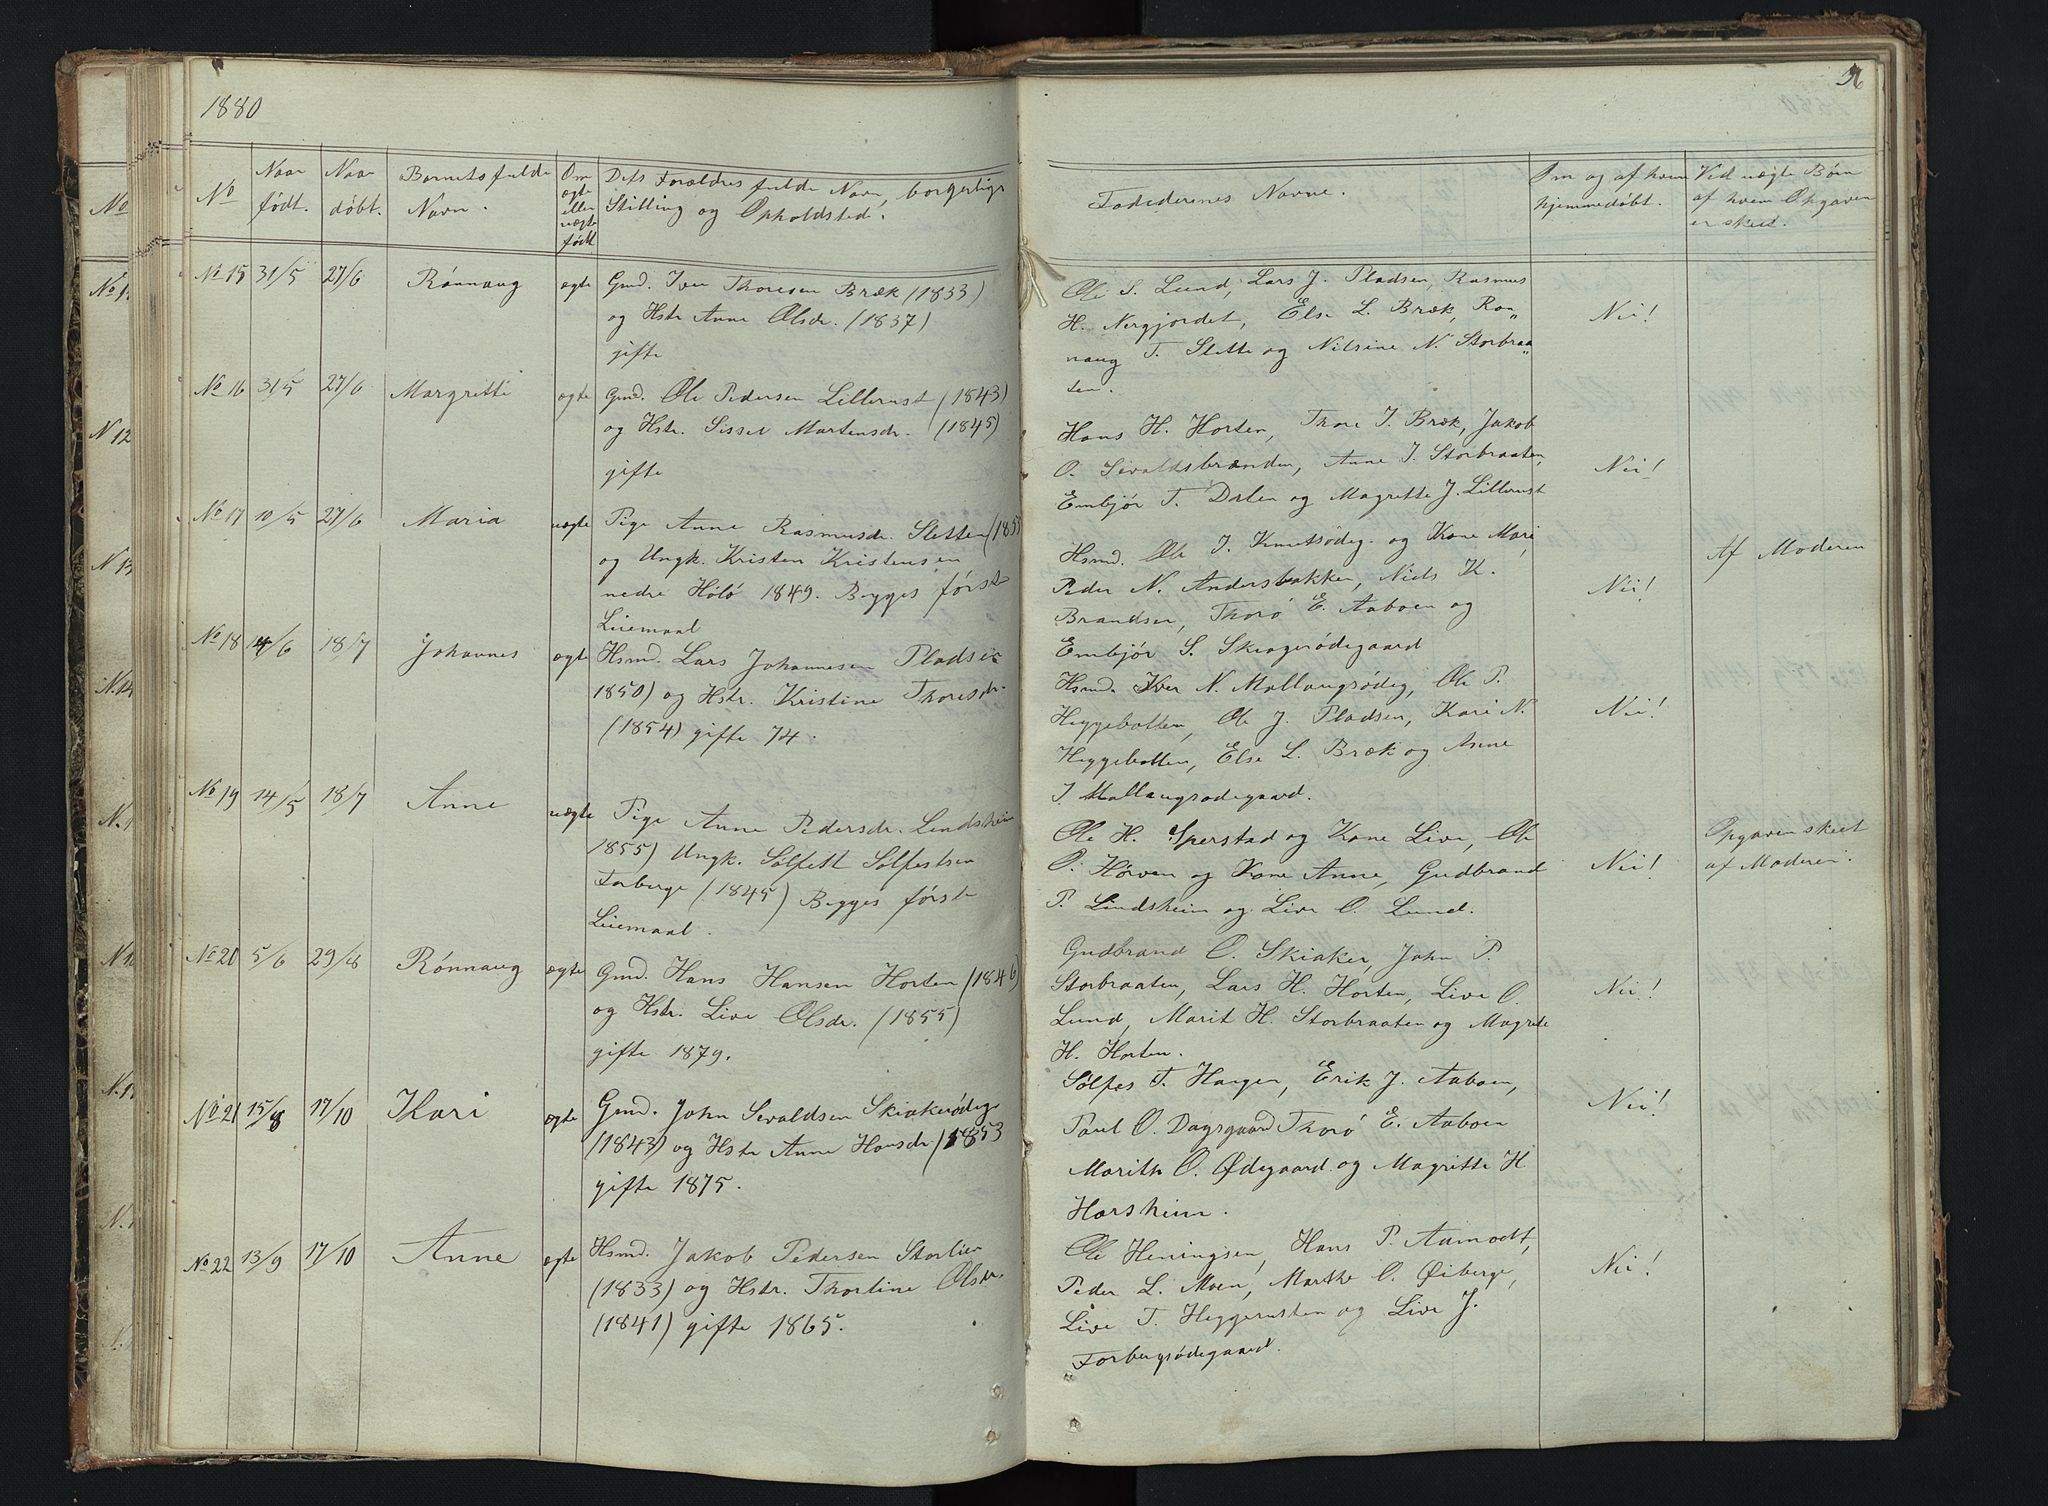 1880
No
Naar født.
Naar døbt.
Barnets fulde Navn.
Om ægte eller uægte født
Dets Forældres fulde Navn, borgerlige Stilling og Opholdsted.
No 15 31/5 27/6 Rønnaug ægte Gmd. Iver Thoresen Bræk (1833)
og Hstr Anne Olsdr. (1837)
gifte
No 16 31/5 27/6 Margrethe ægte Gmd. Ole Pedersen Lillerust (1843)
og Hstr. Sissel Martensdr. (1845)
gifte
No 17 10/5 27/6 Maria uægte Pige Anne Rasmusdr. Sletten (1853
og Ungk. Kristen Kristensen
nedre Höló 1849. Begges første
Leiemaal
No 18 14/6 18/7 Johannes ægte Hsmd. Lars Johannesen Pladsen
1850) og Hstr. Kristine Thoresdr.
(1854) gifte 74.
No 19 14/5 18/7 Anne uægte Pige Anne Pedersdr. Lindsheim
1855) Ungk. Sølfest Sølfestsen
Forberge (1845) Begges første
Leiemaal.
No 20 5/6 29/8 Rønnaug ægte Gmd. Hans Hansen Horten (1846)
og Hstr. Live Olsdr. (1855)
gifte 1879.
No 21 15/8 17/10 Kari ægte Gmd. John Sevaldsen Skiakerødeg
(1843) og Hstr Anne Hansdr. (1853
gifte 1875.
No 22 13/9 17/10 Anne ægte Hsmd. Jakob Pedersen Storlien
(1833) og Hstr. Thorline Olsdr.
(1841) gifte 1865.
Fadedernes Navne.
Om og af hvem hjemmedøbt.
Ved uægte Børn af hvem Opgaven er skeet.
Ole S. Lund, Lars J. Pladsen, Rasmus
H. Nergjordet, Else L. Bræk, Røn„ Nei!
naug T. Slette og Nilsine N. Storbraa„
ten.
Hans H. Horten, Thore I. Bræk, Jakob
O. Sevaldsbrænden, Anne J. Storbraaten, Nei!
Embjør T. Dalen og Magrette J. Lillerust
Hsmd. Ole J. Knutsödeg. og Kone Mari Af Moderen
Peder N. Andersbakken, Niels K. Nei!
Brandsen, Thorø E. Aaboen og
Embjør S. Skiagerødegaard
Hsmd. Iver N. Mallangsödeg, Ole P.
Heggebotten, Ole J. Pladsen, Kari N. Nei!
Heggebotten, Else L. Bræk og Anne
I. Mallangsødegaard.
Ole H. Sperstad og Kone Live, Ole Opgaven skeet
O. Hørven og Kone Anne, Gudbrand Nei! af Moderen.
P. Lindsheim og Live O. Lund.
Gudbrand O. Skiaker, John P.
Storbraaten, Lars H. Horten, Live O. Nei!
Lund, Marit H. Storbraaten og Magrete
H. Horten.
Sølfes T. Haugen, Erik J. Aaboen, Nei!
Paul O. Dagsgaard Thorø E. Aaboen
Marith O. Ødegaard og Magritte H.
Harsheim.
Ole Heningsen, Hans P. Aamodt,
Peder L. Moen, Marthe O. Øiberge, Nei!
Live T. Heggerusten og Live J.
Forbergsødegaard.